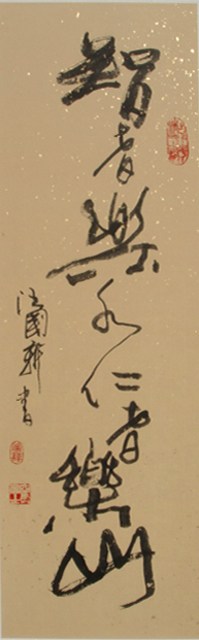 智者樂水仁者樂山
國軒書